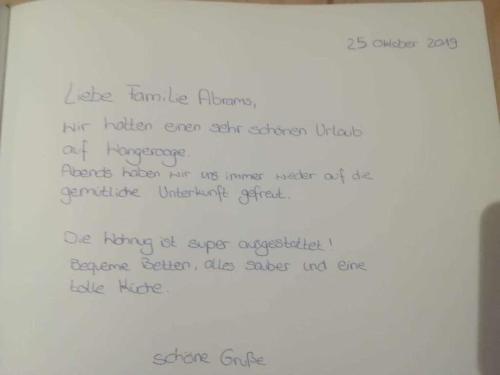 25 Oktober 2019
Liebe Familie Abrams,
wir hatten einen sehr schönen Urlaub
auf Wangerooge.
Abends haben wir uns immer wieder auf die
gemütliche Unterkunft gefreut.
Die Wohnug ist super ausgestattet!
Bequeme Betten, alles sauber und eine
tolle Küche.
schöne Grüße